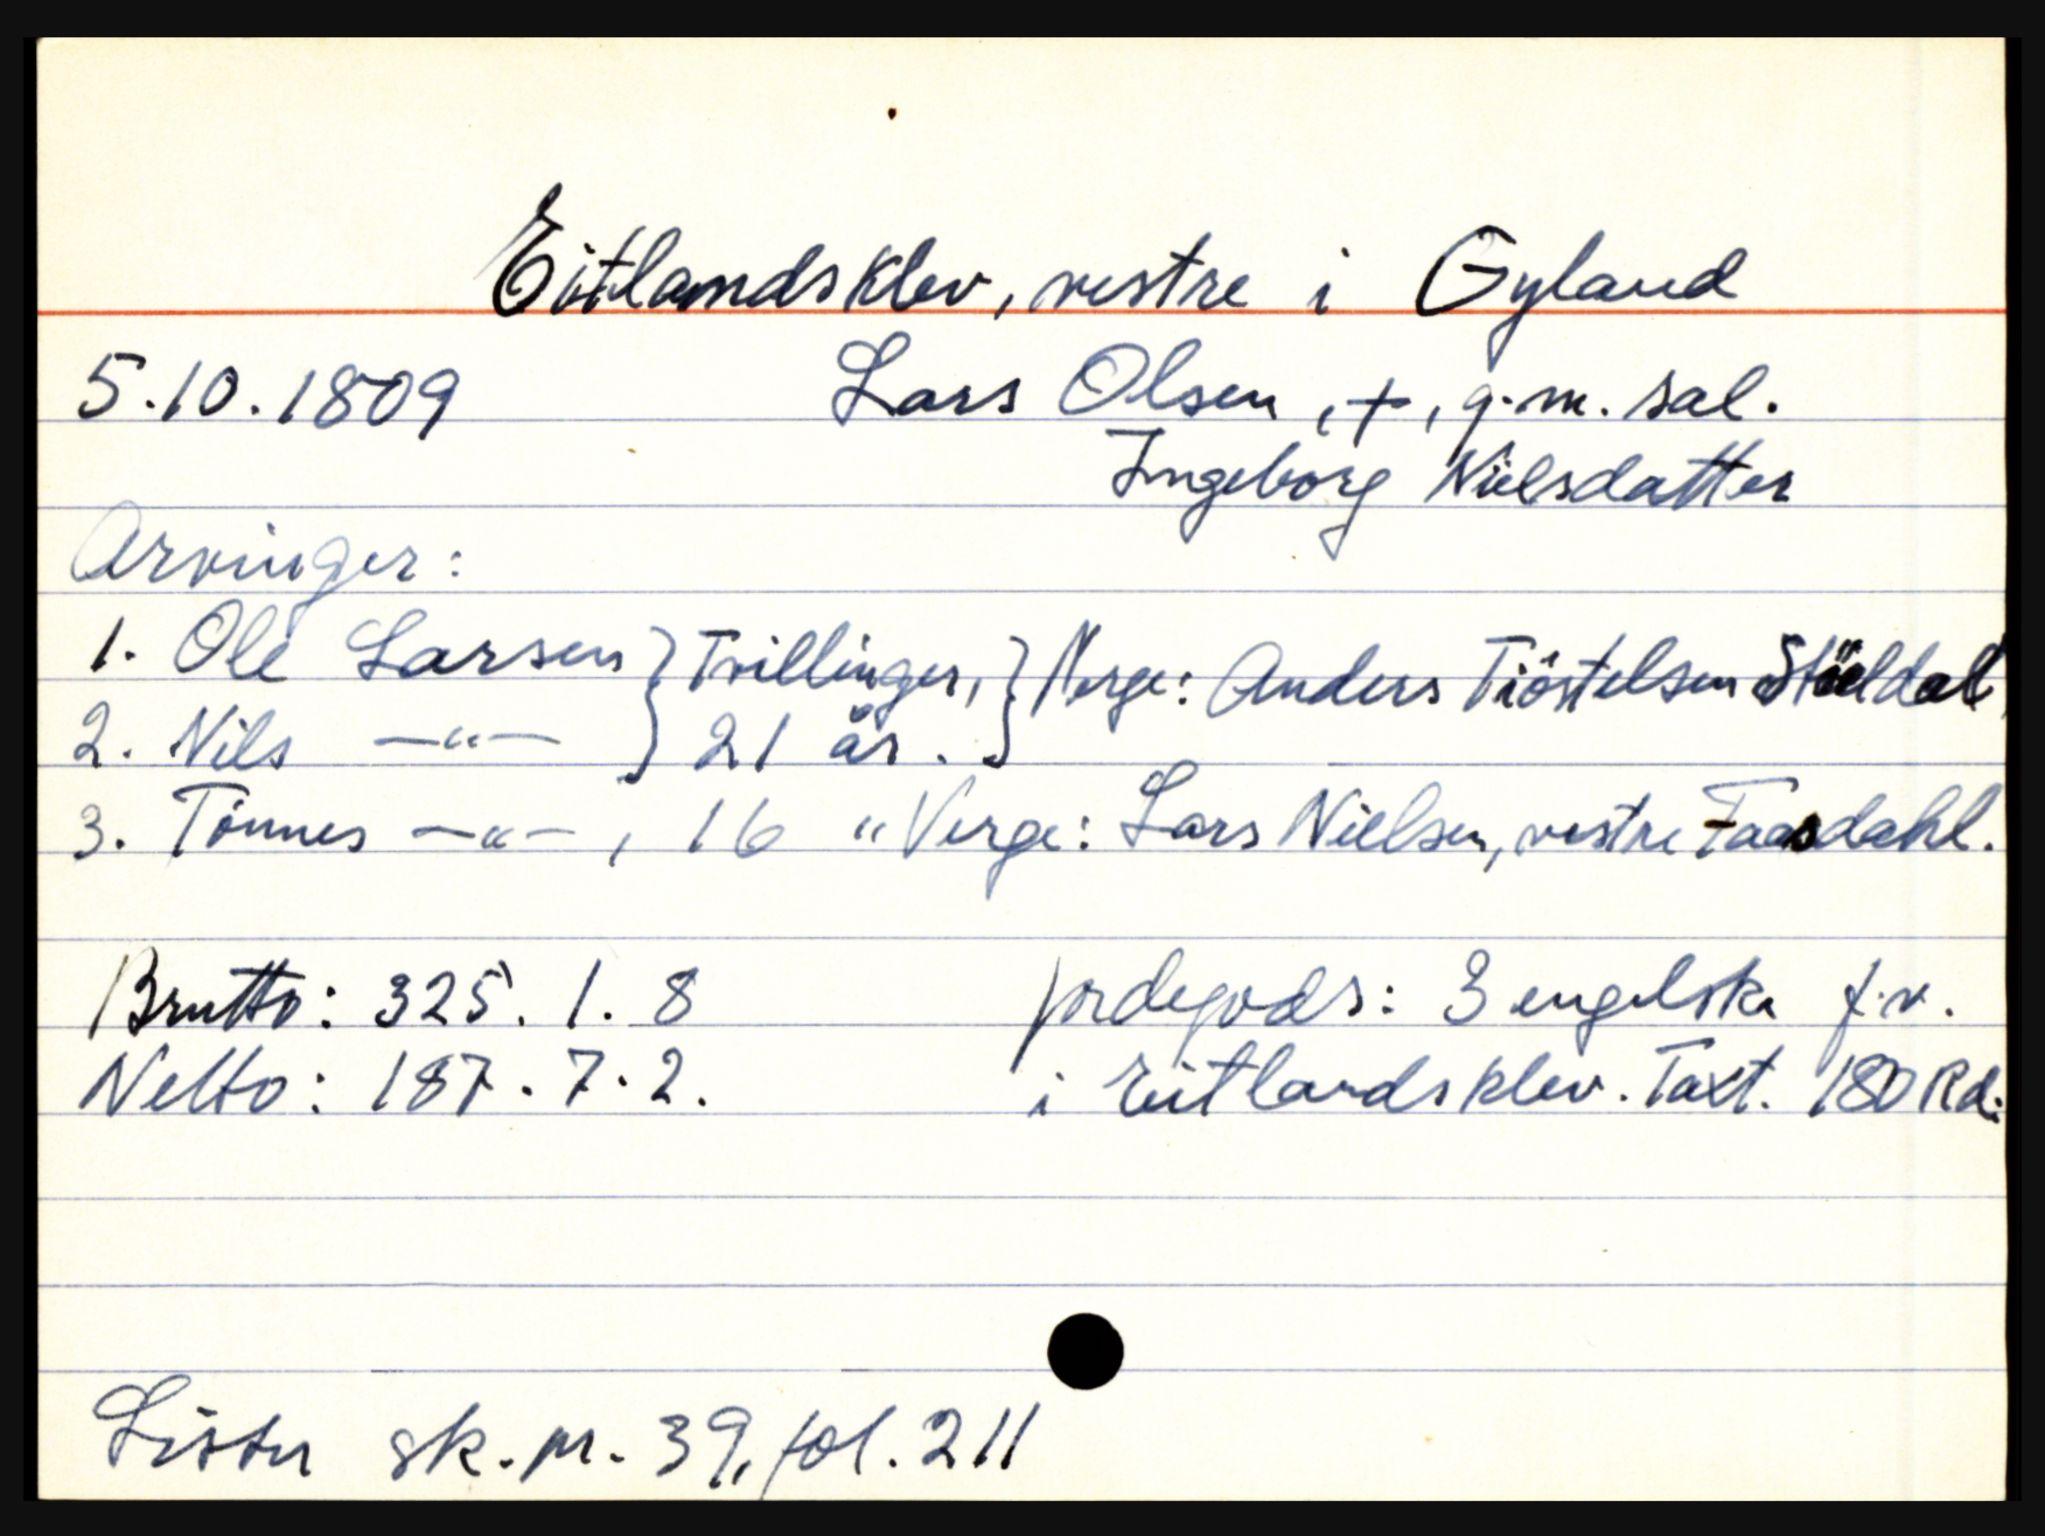 Eitlandsklev, vestre i Gyland
5.10.1809 Lars Olsen, +, g.m. sal.
Ingeborg Nielsdatter
Arvinger:
1. Ole Larsen } Tvillinger, } Verge: Anders Tiöstelsen Stöeldal
2. Nils —"— } 21 år. }
3. Tönnes —"—, 16 " Verge: Lars Nielsen, vestre Faasdahl.
Brutto: 325. 1. 8 Jordegods: 3 engelska f.v.
Netto: 187. 7. 2. i Eitlandsklev. Taxt. 180 Rd.
Lister sk.pr. 39, fol. 211